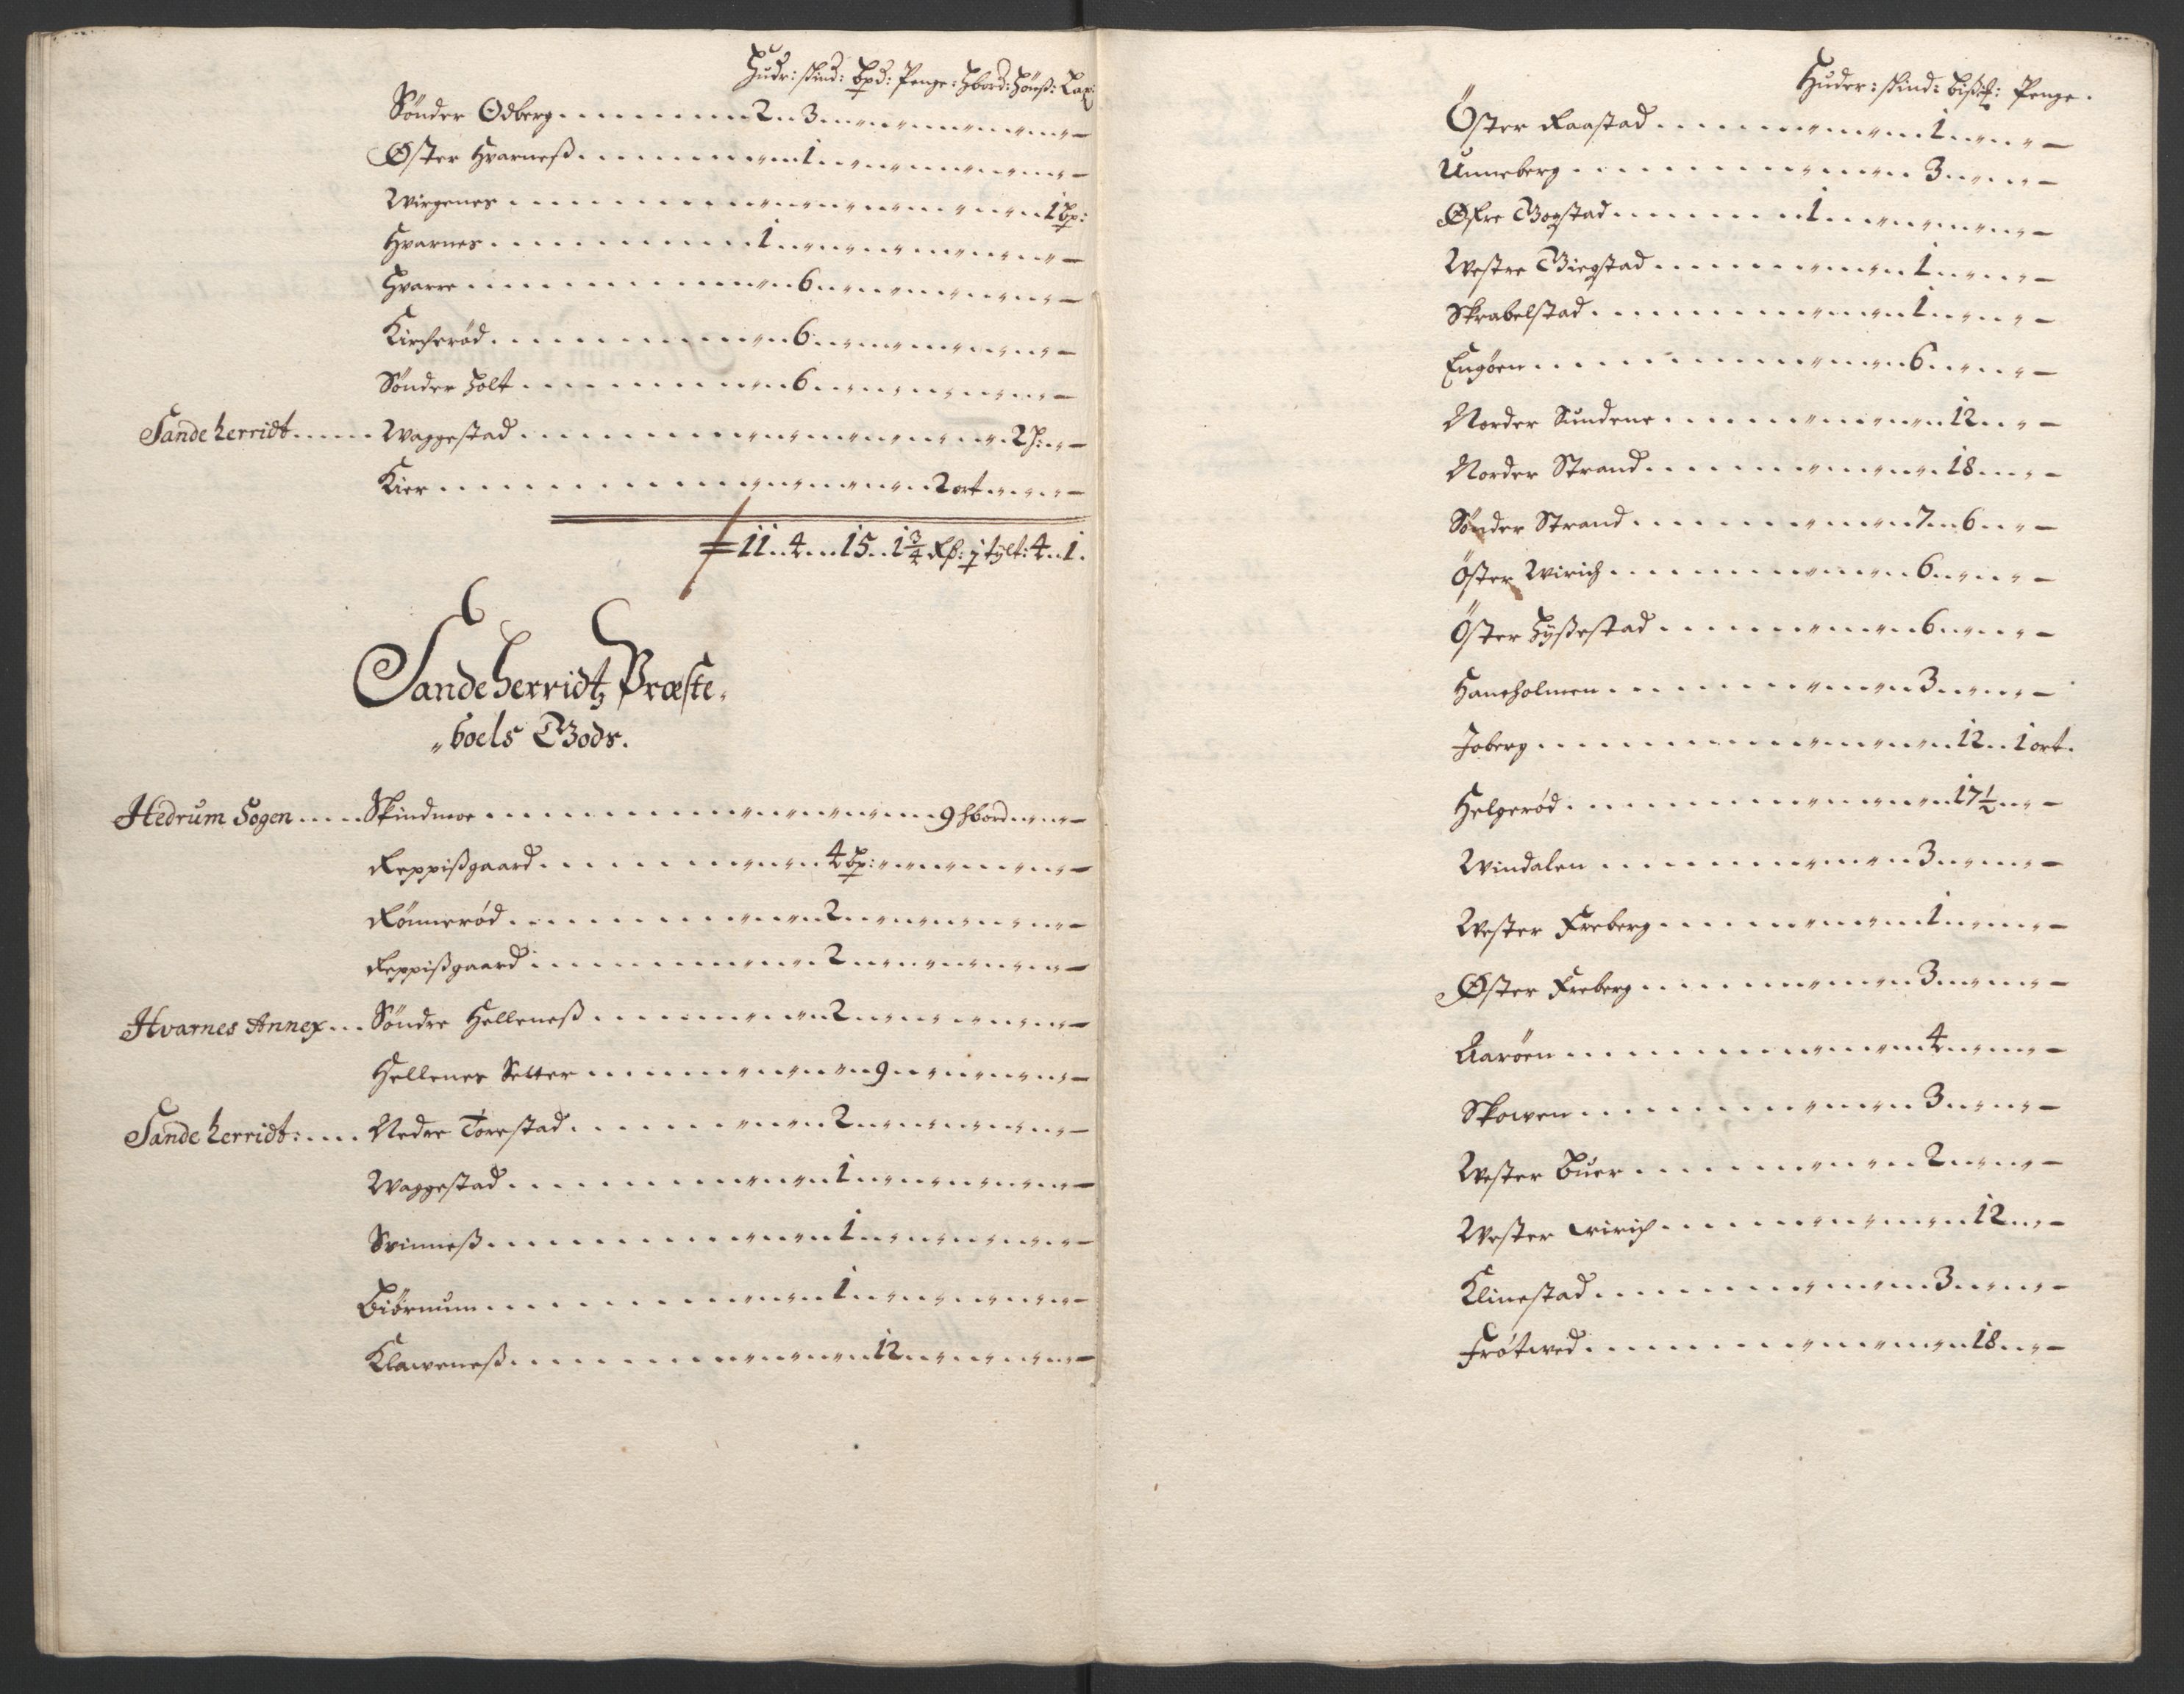 Hudr: skind: bpd: Penge: Hbord: Hönß: Lax:
Sönder Odberg . . . . 2 . . 3 . . . —
Øster Hvarneß . . . . 1 . . . —
Wirgenes . . . . 1 bp:
Hvarnes . . . . 1 . . . —
Hvarre . . . . 6 . . . —
Kircherød . . . . 6 . . . —
Sönder Holt . . . . 6 . . . —
Sandeherridt . . . . Waggestad . . . . 2 h: . . —
Kier . . . . 2 ort . . . —
11 . . 4 . . . 15 . . 1 3/4 Rß: 7 tylt: 4 . . 1 .
Sandeherridtz Præste„
„boels Godz.
Hedrum Sogen . . . . Skindmoe . . . . 9 hbord . . . —
Reppißgaard . . . . 4 bp: . . . —
Rönnerød . . . . 2 . . . —
Reppißgaard . . . . 2 . . . —
Hvarnes Annex . . . Söndre Helleneß . . . . 2 . . . —
Hellenes Setter . . . . 9 . . . —
Sandeherridt: . . . . Nedre Torestad . . . . 2 . . . —
Waggestad . . . . 1 . . . —
Svinneß . . . . 1 . . . —
Biörnum . . . . 1 . . . —
Klaweneß . . . . 12 . . . —
Huder: skind: bißp: Penge.
Öster Raastad . . . . 1 . . . —
Unneberg . . . . 3 . . . —
Øfre Gogstad . . . . 1 . . . —
Westre Giegstad . . . . 1 . . . —
Skrabelstad . . . . 1 . . . —
Engöen . . . . 6 . . . —
Norder Sundene . . . . 12 . . . —
Norder Strand . . . . 18 . . . —
Sönder Strand . . . . 7 . . 6 . . . —
Öster Wirich . . . . 6 . . . —
Öster Hyßestad . . . . 6 . . . —
Haneholmen . . . . 3 . . . —
Joberg . . . . 12 . . 1 ort.
Helgerød . . . . 17 1/2 . . . —
Windalen . . . . 3 . . . —
Wester Freberg . . . . 1 . . . —
Øster Freberg . . . . 3 . . . —
Aaröen . . . . 4 . . . —
Skowen . . . . 3 . . . —
Wester Buer . . . . 2 . . . —
Wester wirich . . . . 12 . . . —
Klinestad . . . . 3 . . . —
Frötwed . . . . 18 . . . —